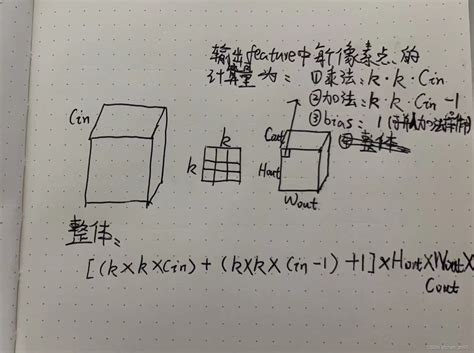 输出feature中每个像素点的
计算量为：①乘法：k·k·Cin
②加法：k·k·Cin-1
③bias：1（于加法操作）
④整体
Cin
k
k
Cout
Hout
Wout
整体、
[(k×k×Cin)+(k×k×Cin-1)+1]×Hout×Wout×
Cout